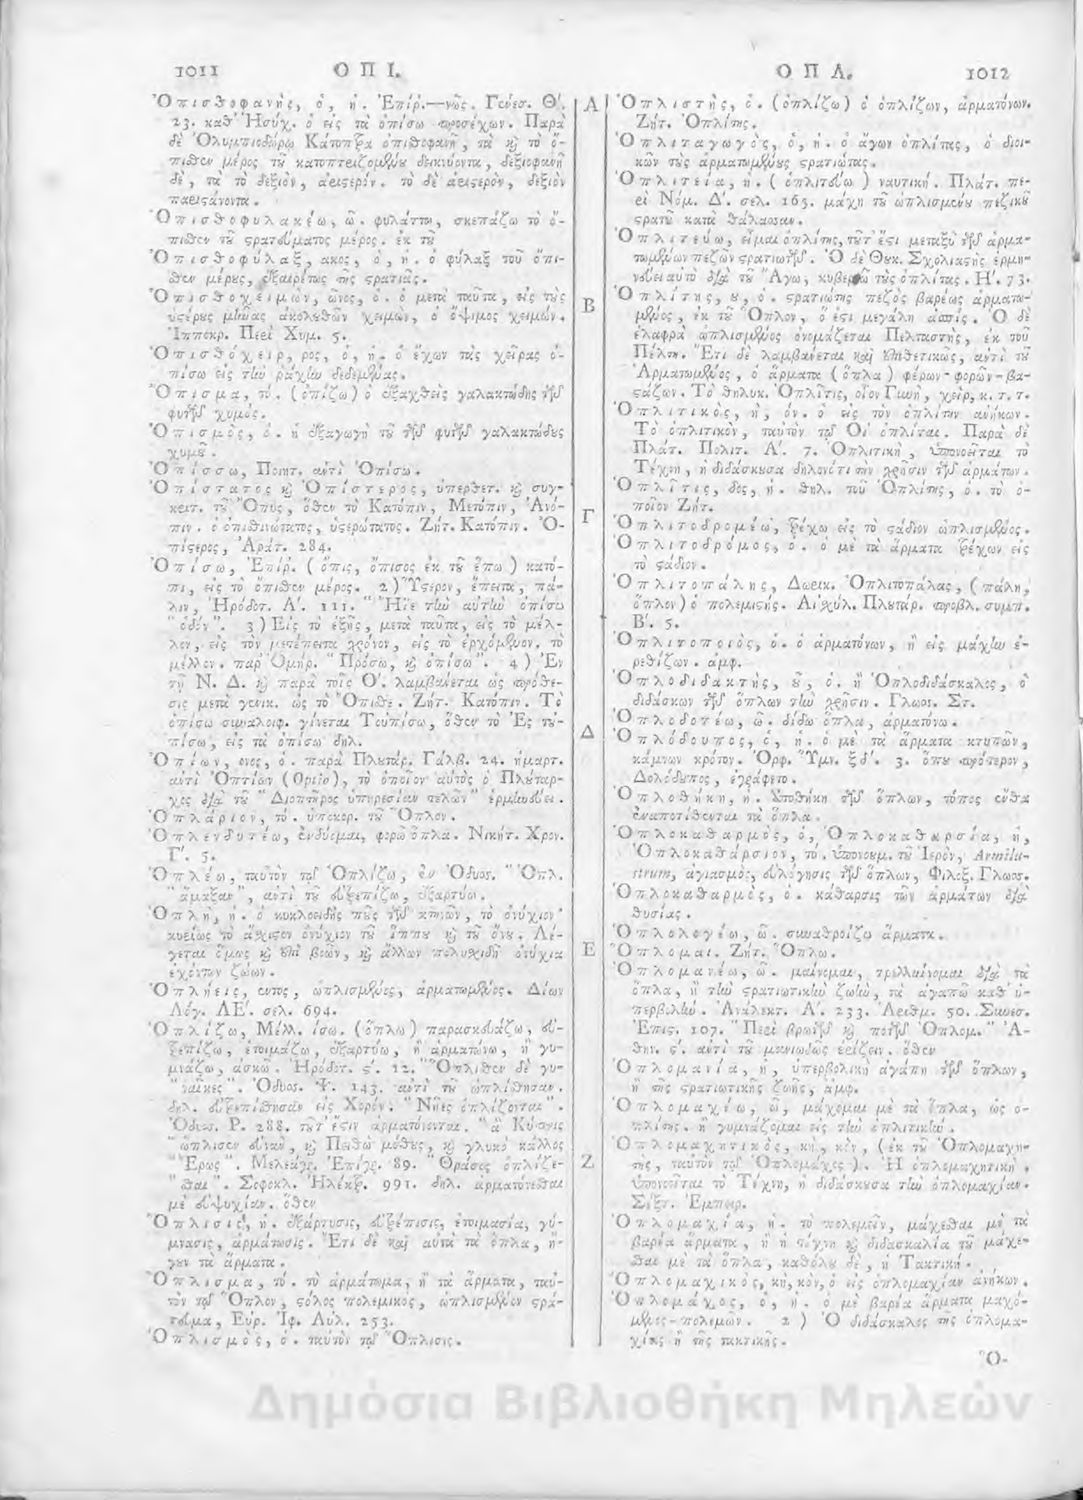 1011 Ο Π Ι.
Ὀπισθοφανής, ὁ, ἡ. Ἐπίρ.—νῶς. Γενέσ. Θ΄.
23. καθ' Ἡσύχ. ὁ εἰς τὰ ὀπίσω προσέχων. Παρὰ
δὲ Ὀλυμπιοδώρῳ Κάτοπτρα ὀπισθοφανῆ, τὰ καὶ τὸ ὄ-
πισθεν μέρος τοῦ κατοπτριζομένου δεικνύοντα, δεξιοφανῆ
δὲ, τὰ τὸ δεξιὸν, ἀριστερόν. τὸ δὲ ἀριστερὸν, δεξιὸν
παριστάνοντα.
Ὀπισθοφυλακέω, ῶ. φυλάττω, σκεπάζω τὸ ὄ-
πισθεν τοῦ στρατεύματος μέρος. ἐκ τοῦ
Ὀπισθοφύλαξ, ακος, ὁ, ἡ. ὁ φύλαξ τοῦ ὄπι-
σθεν μέρους, ἐξαιρέτως τῆς στρατιᾶς.
Ὀπισθοχειμὼν, ῶνος, ὁ. ὁ μετὰ ταῦτα, εἰς τοὺς
ὑστέρους μῆνας ἀκολουθῶν χειμὼν, ὁ ὄψιμος χειμών.
Ἱπποκρ. Περὶ Χυμ. 5.
Ὀπισθόχειρ, ρος, ὁ, ἡ. ὁ ἔχων τὰς χεῖρας ὀ-
πίσω εἰς τὴν ῥάχιν δεδεμένας.
Ὄπισμα, τό. (ὀπίζω) ὁ ἐξαχθεὶς γαλακτώδης τῶν
φυτῶν χυμός.
Ὀπισμὸς, ὁ. ἡ ἐξαγωγὴ τοῦ τῶν φυτῶν γαλακτώδους
χυμοῦ.
Ὀπίσσω, Ποιητ. αντὶ Ὀπίσω.
Ὀπίστατος καὶ Ὀπίστερος, ὑπερθετ. καὶ συγ-
κριτ. τοῦ Ὄπις, ὅθεν τὸ Κατόπιν, Μετόπιν, Ἀνό-
πιν. ὁ ὀπισθινώτατος, ὑστερώτατος. Ζήτ. Κατόπιν. Ὀ-
πίστερος, Ἀράτ. 284.
Ὀπίσω, Ἐπίρ. (ὄπις, ὄπισος ἐκ τοῦ ἕπω) κατό-
πι, εἰς τὸ ὄπισθεν μέρος. 2) Ὕστερον, ἔπειτα, πά-
λιν, Ἡρόδοτ. Α΄. 111. "Ἤϊε τὴν αὐτὴν ὀπίσω
"ὁδόν". 3) Εἰς τὸ ἑξῆς, μετὰ ταῦτα, εἰς τὸ μέλ-
λον, εἰς τὸν μετέπειτα χρόνον, εἰς τὸ ἐρχόμενον. τὸ
μέλλον. παρ' Ὁμήρ. "Πρόσω, καὶ ὀπίσω". 4) Ἐν
τῇ Ν. Δ. καὶ παρὰ τοῖς Ο΄. λαμβάνεται ὡς πρόθε-
σις μετὰ γενικ. ὡς τὸ Ὄπισθε. Ζήτ. Κατόπιν. Τὸ
ὀπίσω συναλοιφ. γίνεται Τουπίσω, ὅθεν τὸ Ἐς του-
πίσω, εἰς τὰ ὀπίσω δηλ.
Ὀπίων, ονος, ὁ. παρὰ Πλουτάρ. Γάλβ. 24. ἡμαρτ.
αντὶ Ὀπτίων (Optio), τὸ ὁποῖον αὐτὸς ὁ Πλούταρ-
χος διὰ τοῦ "Διοπτῆρος ὑπηρεσίαν τελῶν" ἑρμηνεύει.
Ὁπλάριον, τό. ὑποκορ. τοῦ Ὅπλον.
Ὁπλενδυτέω, ἐνδύομαι, φορῶ ὅπλα. Νικήτ. Χρον.
Γ΄. 5.
Ὁπλέω, ταὐτὸν τῷ Ὁπλίζω, ἐν Ὀδυσσ. "Ὅπλ.
"ἅμαξαν", αντὶ τοῦ εὐτρεπίζω, ἐξαρτύω.
Ὁπλὴ, ἡ. ὁ κυκλοειδὴς ποῦς τῶν κτηνῶν, τὸ ὀνύχιον·
κυρίως τὸ ἄσχιστον ὀνύχιον τοῦ ἵππου καὶ τοῦ ὄνου. Λέ-
γεται ὅμως καὶ ἐπὶ βοῶν, καὶ ἄλλων πολυσχιδῆ ὀνύχια
ἐχόντων ζώων.
Ὁπλήεις, εντος, ὡπλισμένος, ἁρματωμένος. Δίων
Λόγ. ΛΕ΄. σελ. 694.
Ὁπλίζω, Μέλλ. ίσω. (ὅπλω) παρασκευάζω, εὐ-
τρεπίζω, ἑτοιμάζω, ἐξαρτύω, ἢ ἁρματόνω, ἢ γυ-
μνάζω, ἀσκῶ. Ἡρόδοτ. ς΄. 12. "Ὁπλισθεν δὲ γυ-
"ναῖκες". Ὀδυσσ. Ψ. 143. αντὶ τοῦ ὡπλίσθησαν.
δηλ. εὐτρεπίσθησαν εἰς Χορόν. "Νῆες ὁπλίζονται".
Ὀδυσσ. Ρ. 288. τοῦτ' ἔστιν ἁρματόνονται. "ἃ Κύπρις
"ὥπλισεν εὐνὰν, καὶ Πειθὼ μύθους, καὶ γλυκὺ κάλλος
"Ἔρως". Μελεάγρ. Ἐπίγρ. 89. "Θράσος ὁπλίζε-
"σθαι". Σοφοκλ. Ἠλέκτρ. 991. δηλ. ἁρματόνεσθαι
μὲ εὐψυχίαν. ὅθεν
Ὅπλισις, ἡ. ἐξάρτυσις, εὐτρέπισις, ἑτοιμασία, γύ-
μνασις, ἁρμάτωσις. Ἔτι δὲ καὶ αὐτὰ τὰ ὅπλα, ἤ-
γουν τὰ ἅρματα.
Ὅπλισμα, τό. τὸ ἁρμάτωμα, ἢ τὰ ἅρματα, ταὐ-
τὸν τῷ Ὅπλον, στόλος πολεμικὸς, ὡπλισμένον στρά-
τευμα, Εὐρ. Ἰφ. Αὐλ. 253.
Ὁπλισμὸς, ὁ. ταὐτὸν τῷ Ὅπλισις.
Α
Β
Γ
Δ
Ε
Ζ
Ο Π Λ. 1012
Ὁπλιστὴς, ὁ. (ὁπλίζω) ὁ ὁπλίζων, ἁρματόνων.
Ζήτ. Ὁπλίτης.
Ὁπλιταγωγὸς, ὁ, ἡ. ὁ ἄγων ὁπλίτας, ὁ διοι-
κῶν τοὺς ἁρματωμένους στρατιώτας.
Ὁπλιτεία, ἡ. (ὁπλιτεύω) ναυτική. Πλάτ. πε-
ρὶ Νόμ. Δ΄. σελ. 165. μάχη τοῦ ὡπλισμένου πεζικοῦ
στρατοῦ κατὰ θάλασσαν.
Ὁπλιτεύω, εἶμαι ὁπλίτης, τοῦτ' ἔστι μεταξὺ τῶν ἁρμα-
τωμένων πεζῶν στρατιωτῶν. Ὁ δὲ Θουκ. Σχολιαστὴς ἑρμη-
νεύει αὐτὸ διὰ τοῦ Ἄγω, κυβερνῶ τοὺς ὁπλίτας. Η΄. 73.
Ὁπλίτης, ου, ὁ. στρατιώτης πεζὸς βαρέως ἁρματω-
μένος, ἐκ τοῦ Ὅπλον, ὅ ἐστι μεγάλη ἀσπίς. Ὁ δὲ
ἐλαφρὰ ὡπλισμένος ὀνομάζεται Πελταστὴς, ἐκ τοῦ
Πέλτη. Ἔτι δὲ λαμβάνεται καὶ ἐπιθετικῶς, αντὶ τοῦ
Ἁρματωμένος, ὁ ἅρματα (ὅπλα) φέρων-φορῶν-βα-
στάζων. Τὸ θηλυκ. Ὁπλῖτις, οἷον Γυνὴ, χεὶρ, κ. τ. τ.
Ὁπλιτικὸς, ἡ, όν. ὁ εἰς τὸν ὁπλίτην ἀνήκων.
Τὸ ὁπλιτικὸν, ταὐτὸν τῷ Οἱ ὁπλῖται. Παρὰ δὲ
Πλάτ. Πολιτ. Α΄. 7. Ὁπλιτικὴ, ὑπονοεῖται τὸ
Τέχνη, ἡ διδάσκουσα δηλονότι τὴν χρῆσιν τῶν ἁρμάτων.
Ὁπλῖτις, δος, ἡ. θηλ. τοῦ Ὁπλίτης, ὁ. τὸ ὁ-
ποῖον Ζήτ.
Ὁπλιτοδρομέω, τρέχω εἰς τὸ στάδιον ὡπλισμένος.
Ὁπλιτοδρόμος, ὁ. ὁ μὲ τὰ ἅρματα τρέχων εἰς
τὸ στάδιον.
Ὁπλιτοπάλης, Δωρικ. Ὁπλιτοπάλας, (πάλη,
ὅπλον) ὁ πολεμιστής. Αἰσχύλ. Πλουτάρ. προβλ. συμπ.
Β΄. 5.
Ὁπλιτοποιὸς, ὁ. ὁ ἁρματόνων, ἢ εἰς μάχην ἐ-
ρεθίζων. ἀμφ.
Ὁπλοδιδακτὴς, οῦ, ὁ. ἢ Ὁπλοδιδάσκαλος, ὁ
διδάσκων τῶν ὅπλων τὴν χρῆσιν. Γλωσσ. Στ.
Ὁπλοδοτέω, ῶ. δίδω ὅπλα, ἁρματόνω.
Ὁπλόδουπος, ὁ, ἡ. ὁ μὲ τὰ ἅρματα κτυπῶν,
κάμνων κρότον. Ὀρφ. Ὕμν. ξδ΄. 3. ὅπου πρότερον,
Δολόδουπος, ἐγράφετο.
Ὁπλοθήκη, ἡ. ἀποθήκη τῶν ὅπλων, τόπος ἔνθα
ἐναποτίθενται τὰ ὅπλα.
Ὁπλοκαθαρμὸς, ὁ, Ὁπλοκαθαρσία, ἡ,
Ὁπλοκαθάρσιον, τό. ὑπονοουμ. τοῦ Ἱερὸν, Armilu-
strum, ἁγιασμὸς, εὐλόγησις τῶν ὅπλων, Φιλοξ. Γλωσσ.
Ὁπλοκαθαρμὸς, ὁ. κάθαρσις τῶν ἁρμάτων διὰ
θυσίας.
Ὁπλολογέω, ῶ. συναθροίζω ἅρματα.
Ὅπλομαι. Ζήτ. Ὅπλω.
Ὁπλομανέω, ῶ. μαίνομαι, τρελλαίνομαι διὰ τὰ
ὅπλα, ἢ τὴν στρατιωτικὴν ζωὴν, τὰ ἀγαπῶ καθ' ὑ-
περβολήν. Ἀνάλεκτ. Α΄. 233. Ἀριθμ. 50. Συνεσ.
Ἐπισ. 107. "Περὶ βρωτῶν καὶ ποτῶν Ὁπλομ." Ἀ-
θην. ς΄. αντὶ τοῦ μανιωδῶς ἐρίζειν. ὅθεν
Ὁπλομανία, ἡ, ὑπερβολικὴ ἀγάπη τῶν ὅπλων,
ἢ τῆς στρατιωτικῆς ζωῆς, ἀμφ.
Ὁπλομαχέω, ῶ, μάχομαι μὲ τὰ ὅπλα, ὡς ὁ-
πλίτης. ἢ γυμνάζομαι εἰς τὴν ὁπλιτικήν.
Ὁπλομαχητικὸς, κὴ, κὸν, (ἐκ τοῦ Ὁπλομαχη-
τὴς, ταὐτὸν τῷ Ὁπλομάχος). Ἡ ὁπλομαχητικὴ,
ὑπονοεῖται τὸ Τέχνη, ἡ διδάσκουσα τὴν ὁπλομαχίαν.
Σέξτ. Ἐμπειρ.
Ὁπλομαχία, ἡ. τὸ πολεμεῖν, μάχεσθαι μὲ τὰ
βαρέα ἅρματα, ἢ ἡ τέχνη καὶ διδασκαλία τοῦ μάχε-
σθαι μὲ τὰ ὅπλα, καθόλου δὲ, ἡ Τακτική.
Ὁπλομαχικὸς, κὴ, κὸν, ὁ εἰς ὁπλομαχίαν ἀνήκων.
Ὁπλομάχος, ὁ, ἡ. ὁ μὲ βαρέα ἅρματα μαχό-
μενος-πολεμῶν. 2) Ὁ διδάσκαλος τῆς ὁπλομα-
χίας ἢ τῆς τακτικῆς.
Ὁ-
Δημόσια Βιβλιοθήκη Μηλεών